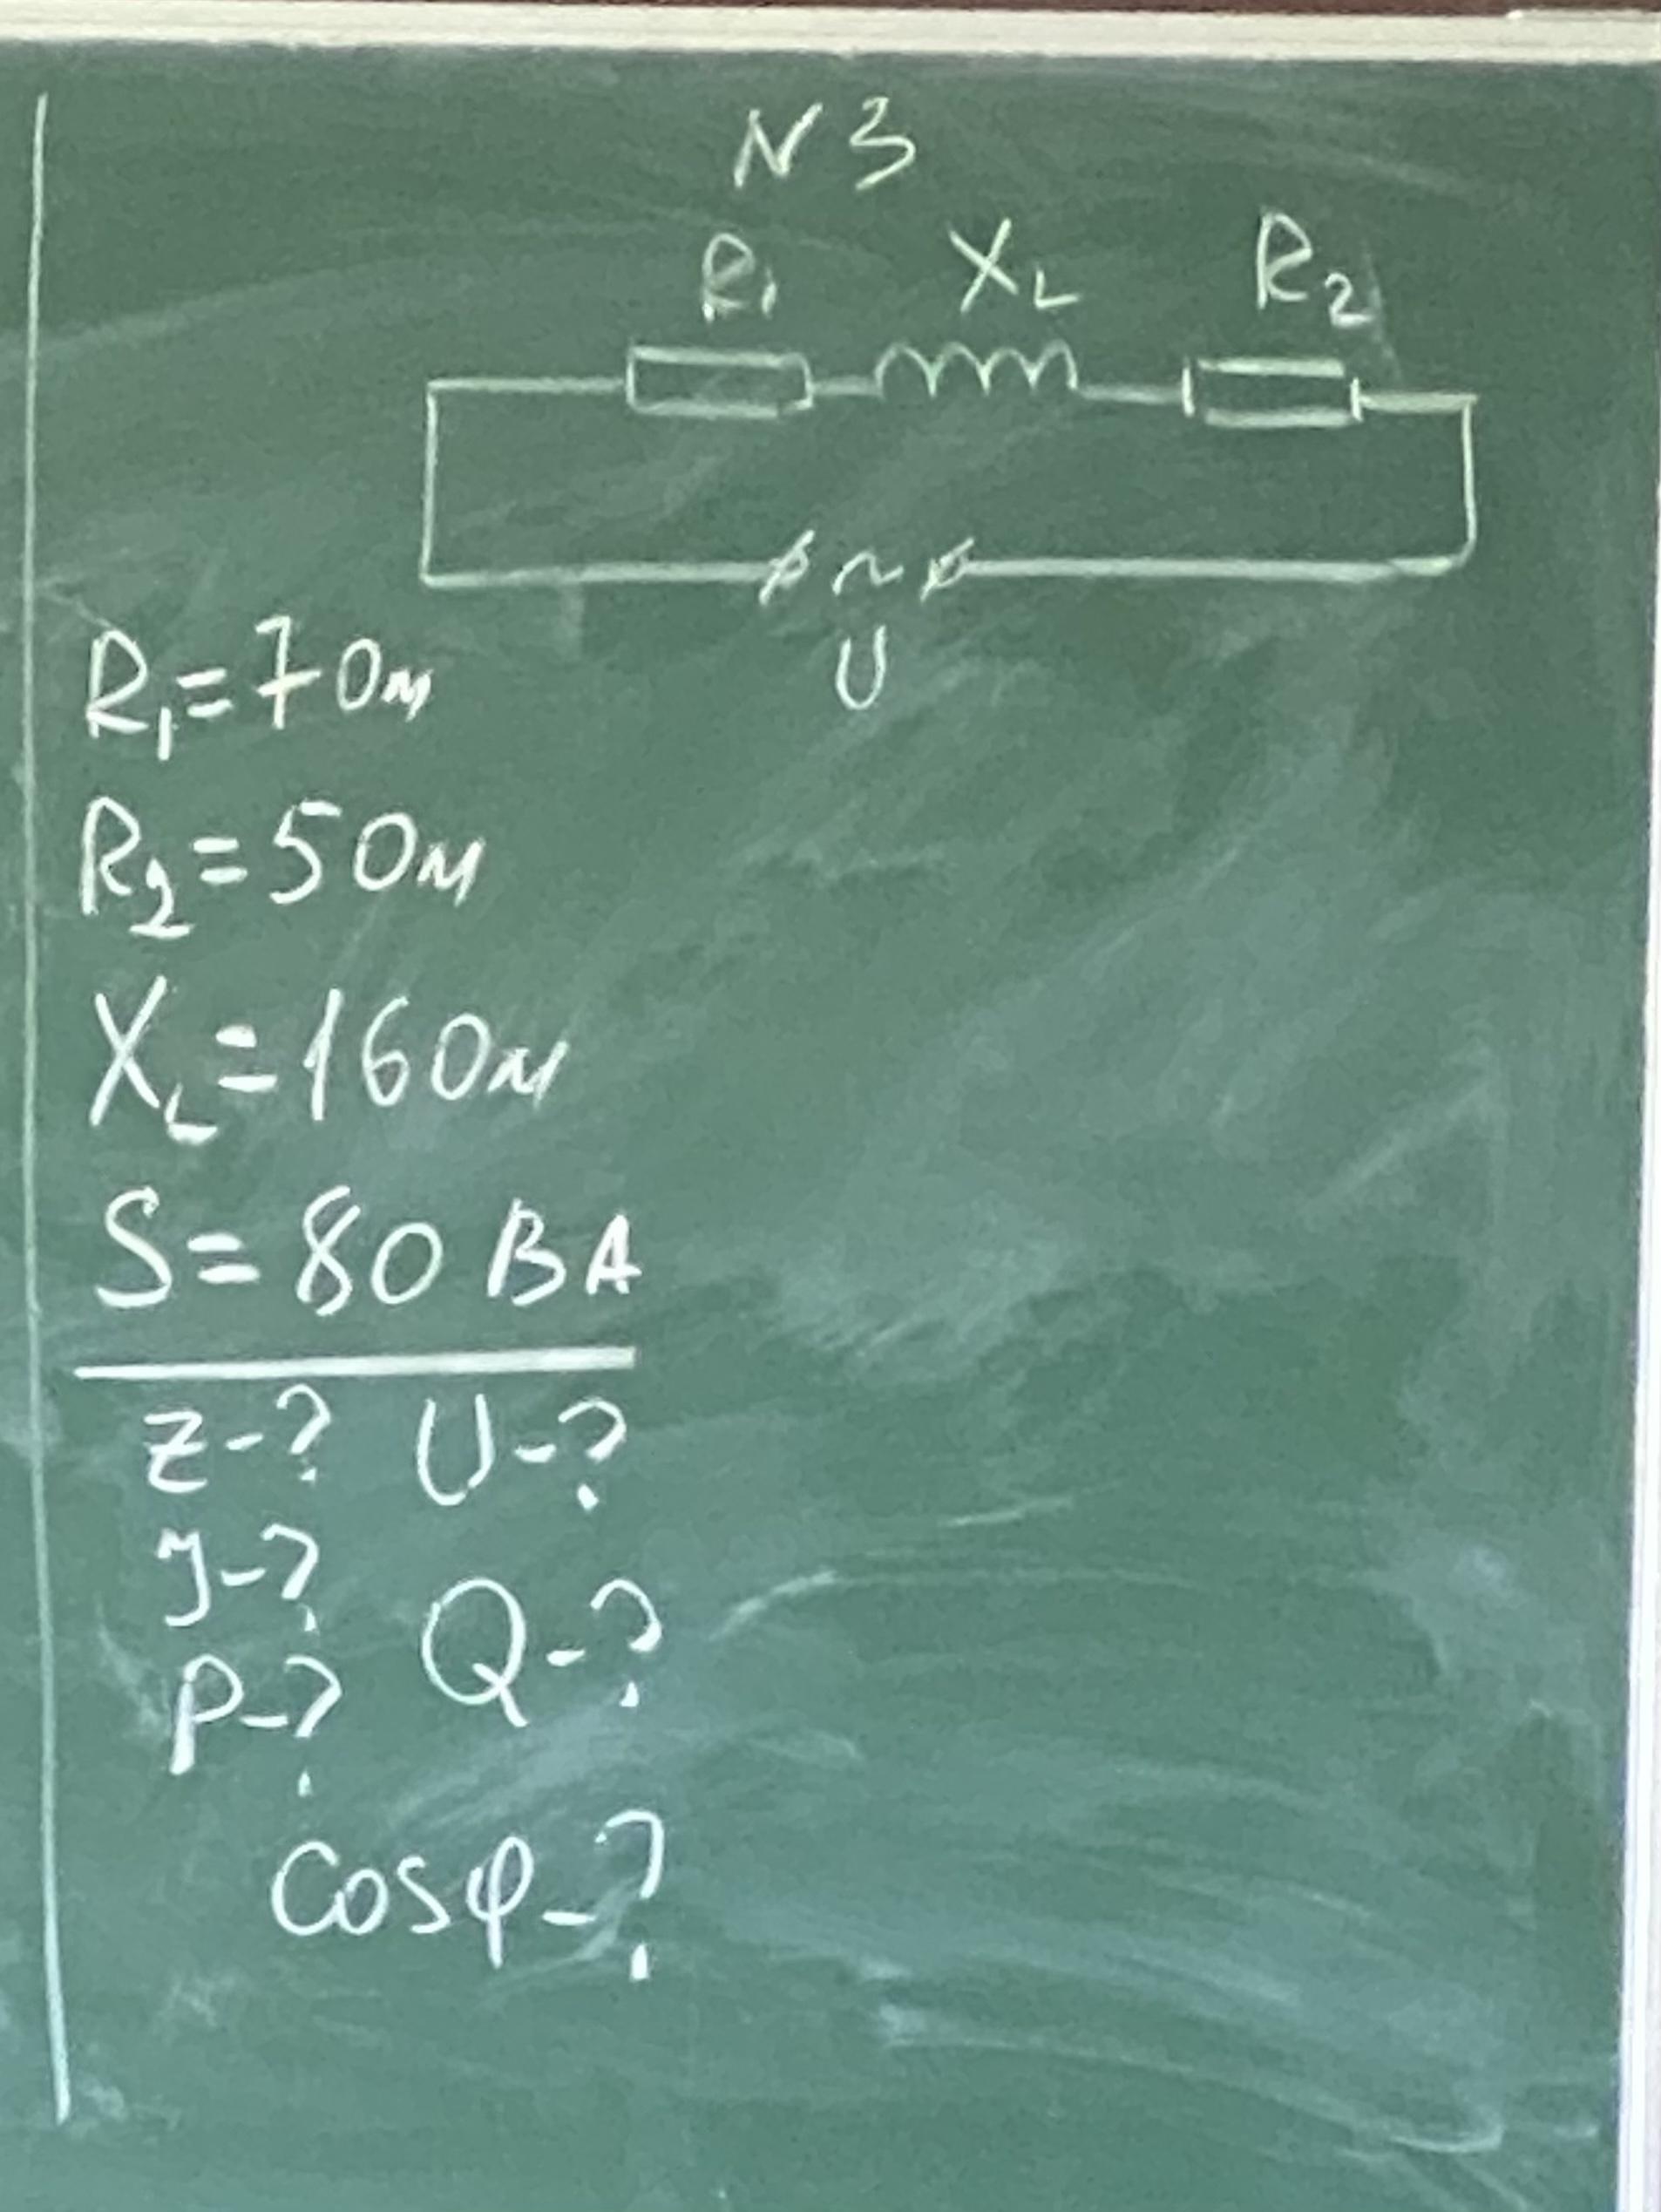 N 3
R₁ X_L R₂
~
U
R₁=7 Ом
R₂=5 Ом
X_L=16 Ом
S=80 ВА
Z-? U-?
J-? Q-?
P-?
cosφ-?